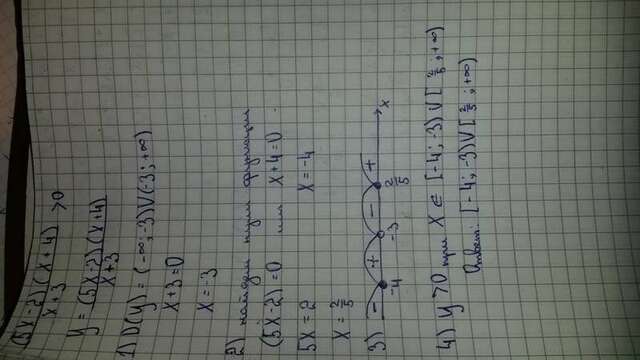 (5x-2)(x+4)/x+3 >0
y = (5x-2)(x+4)/x+3
1) D(y) = (-∞;-3)∪(-3;+∞)
x+3=0
x=-3
2) найдем нули функции
(5x-2)=0 или x+4=0
5x=2 x=-4
x=2/5
3) - + - + x
-4 -3 2/5
4) y>0 при x ∈ [-4;-3)∪[2/5;+∞)
Ответ: [-4;-3)∪[2/5;+∞)